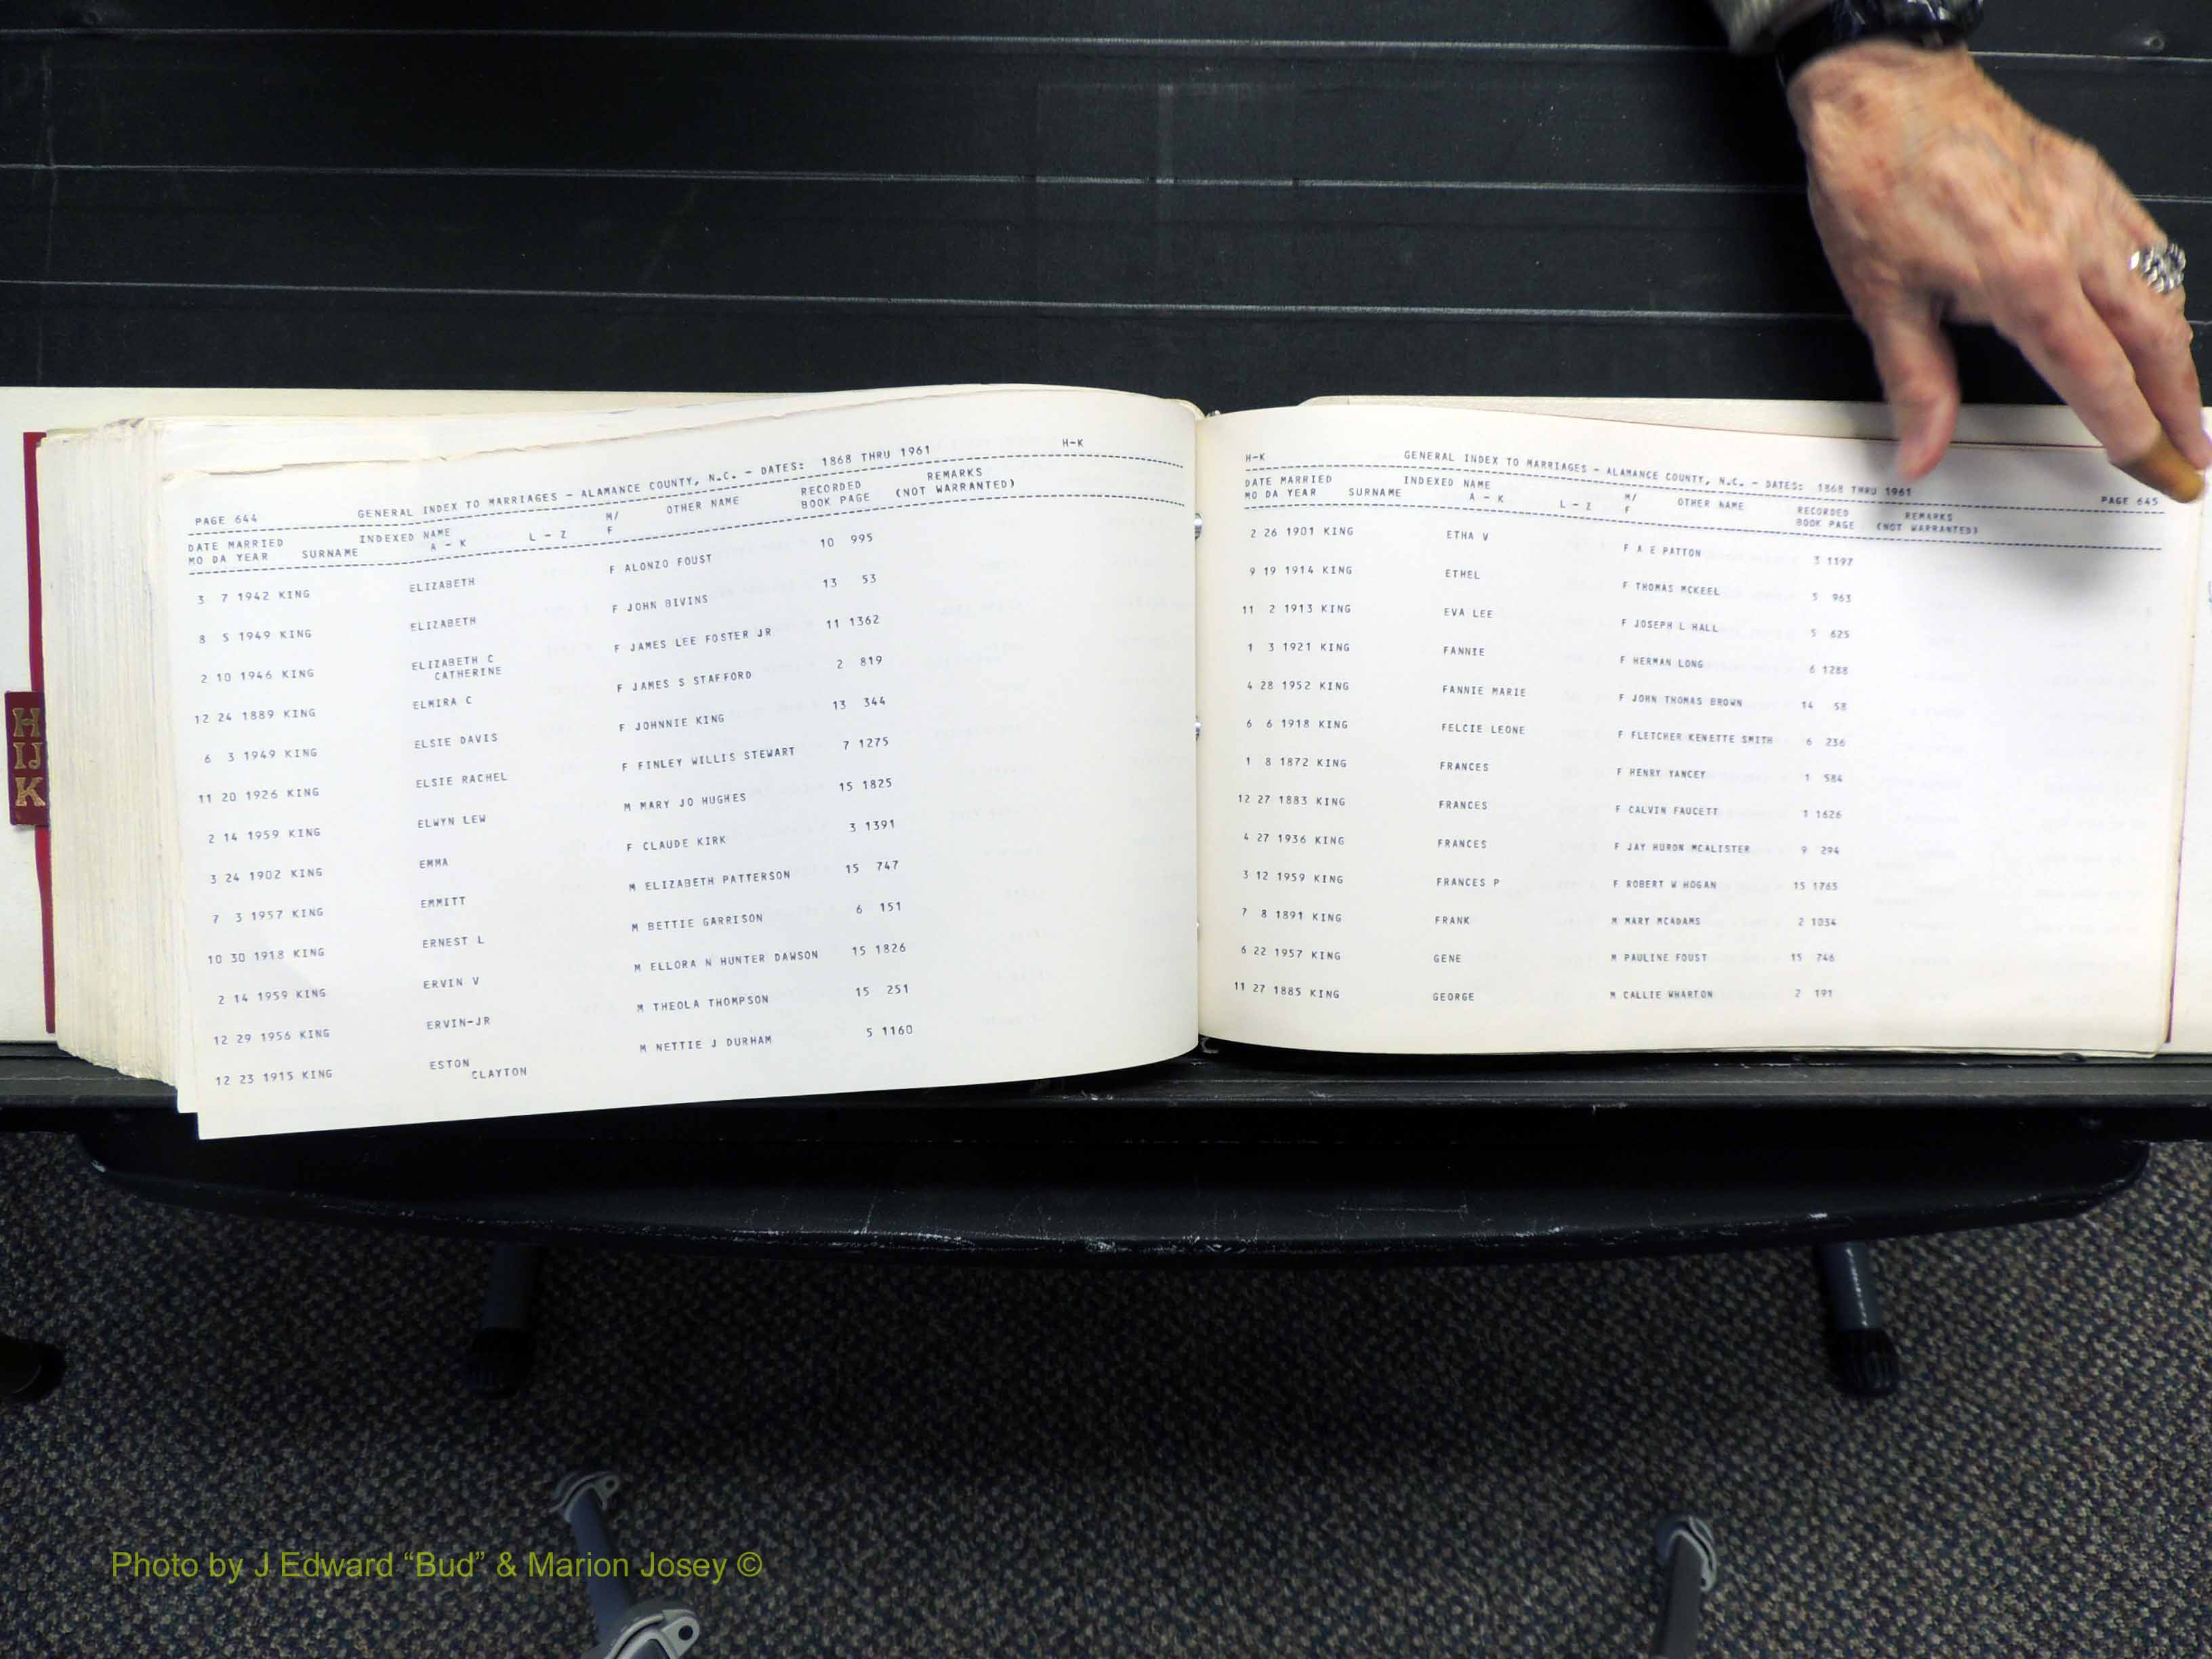 H
IJ
K
PAGE 644 GENERAL INDEX TO MARRIAGES - ALAMANCE COUNTY, N.C. - DATES: 1868 THRU 1961 H-K
DATE MARRIED INDEXED NAME M/ OTHER NAME RECORDED REMARKS
MO DA YEAR SURNAME A - K L - Z F BOOK PAGE (NOT WARRANTED)
3 7 1942 KING ELIZABETH F ALONZO FOUST 10 995
8 5 1949 KING ELIZABETH F JOHN BIVINS 13 53
2 10 1946 KING ELIZABETH C F JAMES LEE FOSTER JR 11 1362
CATHERINE
12 24 1889 KING ELMIRA C F JAMES S STAFFORD 2 819
6 3 1949 KING ELSIE DAVIS F JOHNNIE KING 13 344
11 20 1926 KING ELSIE RACHEL F FINLEY WILLIS STEWART 7 1275
2 14 1959 KING ELWYN LEW M MARY JO HUGHES 15 1825
3 24 1902 KING EMMA F CLAUDE KIRK 3 1391
7 3 1957 KING EMMITT M ELIZABETH PATTERSON 15 747
10 30 1918 KING ERNEST L M BETTIE GARRISON 6 151
2 14 1959 KING ERVIN V M ELLORA N HUNTER DAWSON 15 1826
12 29 1956 KING ERVIN-JR M THEOLA THOMPSON 15 251
12 23 1915 KING ESTON M NETTIE J DURHAM 5 1160
CLAYTON
H-K GENERAL INDEX TO MARRIAGES - ALAMANCE COUNTY, N.C. - DATES: 1868 THRU 1961 PAGE 645
DATE MARRIED INDEXED NAME M/ OTHER NAME RECORDED REMARKS
MO DA YEAR SURNAME A - K L - Z F BOOK PAGE (NOT WARRANTED)
2 26 1901 KING ETHA V F A E PATTON 3 1197
9 19 1914 KING ETHEL F THOMAS MCKEEL 5 963
11 2 1913 KING EVA LEE F JOSEPH L HALL 5 625
1 3 1921 KING FANNIE F HERMAN LONG 6 1288
4 28 1952 KING FANNIE MARIE F JOHN THOMAS BROWN 14 58
6 6 1918 KING FELCIE LEONE F FLETCHER KENETTE SMITH 6 236
1 8 1872 KING FRANCES F HENRY YANCEY 1 584
12 27 1883 KING FRANCES F CALVIN FAUCETT 1 1626
4 27 1936 KING FRANCES F JAY HURON MCALISTER 9 294
3 12 1959 KING FRANCES P F ROBERT W HOGAN 15 1765
7 8 1891 KING FRANK M MARY MCADAMS 2 1034
6 22 1957 KING GENE M PAULINE FOUST 15 746
11 27 1885 KING GEORGE M CALLIE WHARTON 2 191
Photo by J Edward “Bud” & Marion Josey ©